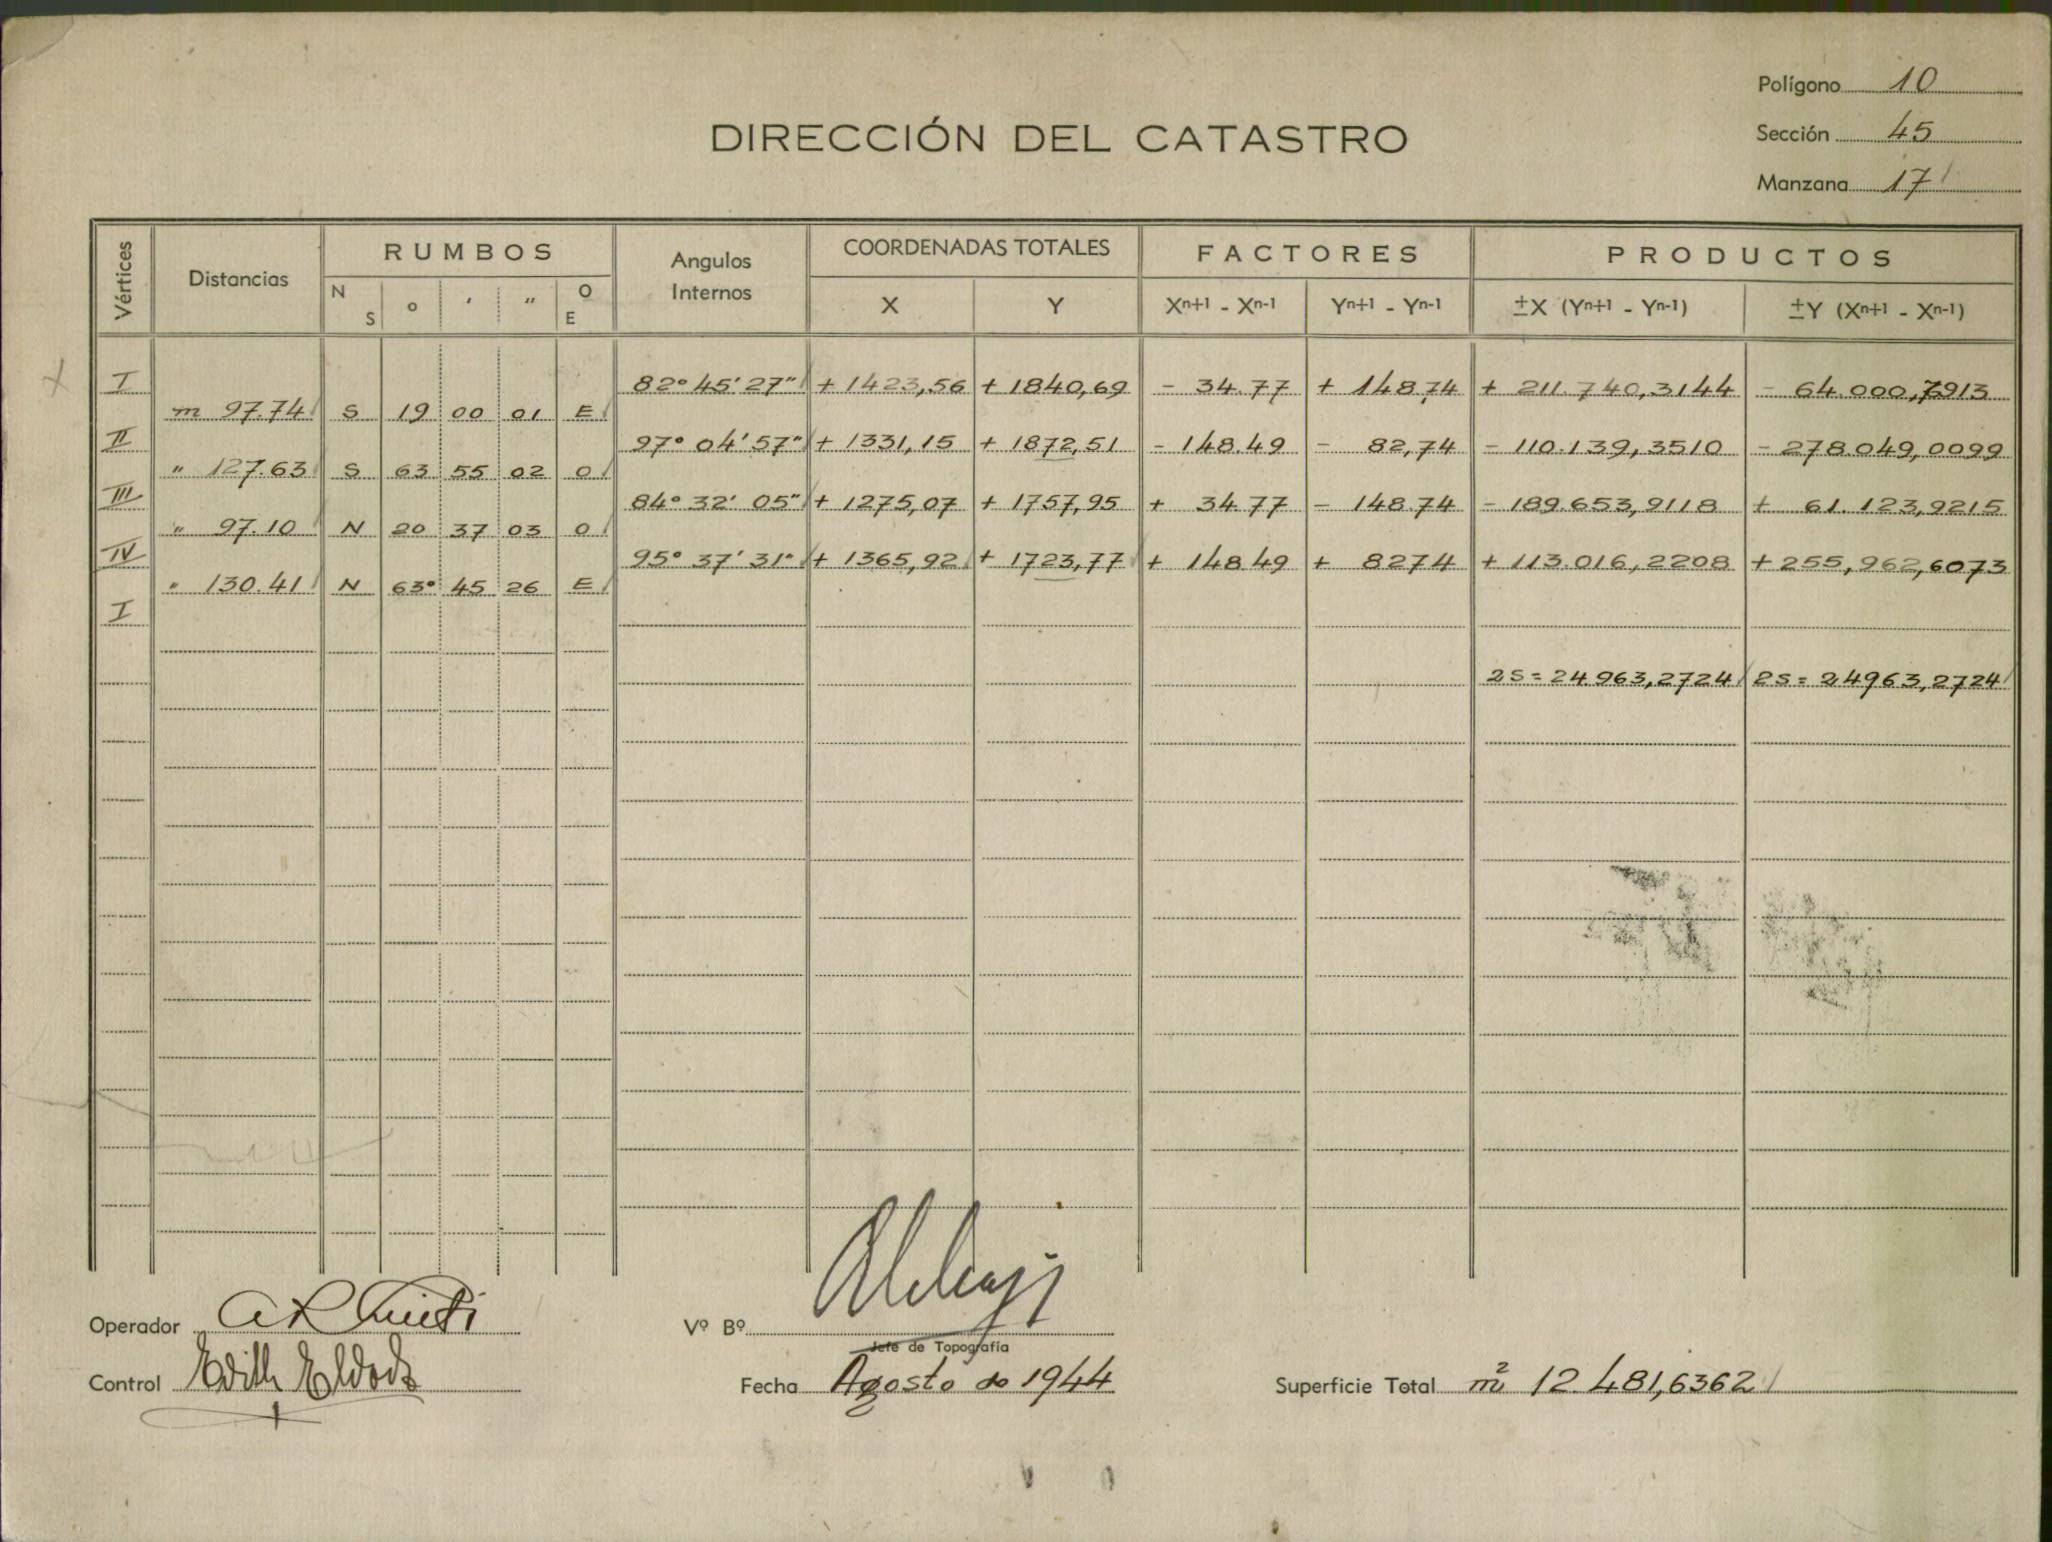 Polígono 10
DIRECCIÓN DEL CATASTRO
Sección 45
Manzana 17
Vértices Distancias RUMBOS Angulos Internos COORDENADAS TOTALES FACTORES PRODUCTOS
N S o ′ ″ O E X Y Xn+1 - Xn-1 Yn+1 - Yn-1 ±X (Yn+1 - Yn-1) ±Y (Xn+1 - Xn-1)
I 82° 45' 27" + 1423,56 + 1840,69 - 34.77 + 148,74 + 211.740,3144 - 64.000,7913
m 97.74 S 19 00 01 E
II 97° 04' 57" + 1331,15 + 1872,51 - 148.49 - 82,74 - 110.139,3510 - 278.049,0099
" 127.63 S 63 55 02 O
III 84° 32' 05" + 1275,07 + 1757,95 + 34.77 - 148.74 - 189.653,9118 + 61.123,9215
" 97.10 N 20 37 03 O
IV 95° 37' 31" + 1365,92 + 1723,77 + 148.49 + 8274 + 113.016,2208 + 255,962,6073
" 130.41 N 63° 45 26 E
I
2S = 24.963,2724 2S = 24963,2724
Operador
Vº Bº
Jefe de Topografía
Control Edith
Fecha Agosto de 1944
Superficie Total m² 12.481,6362